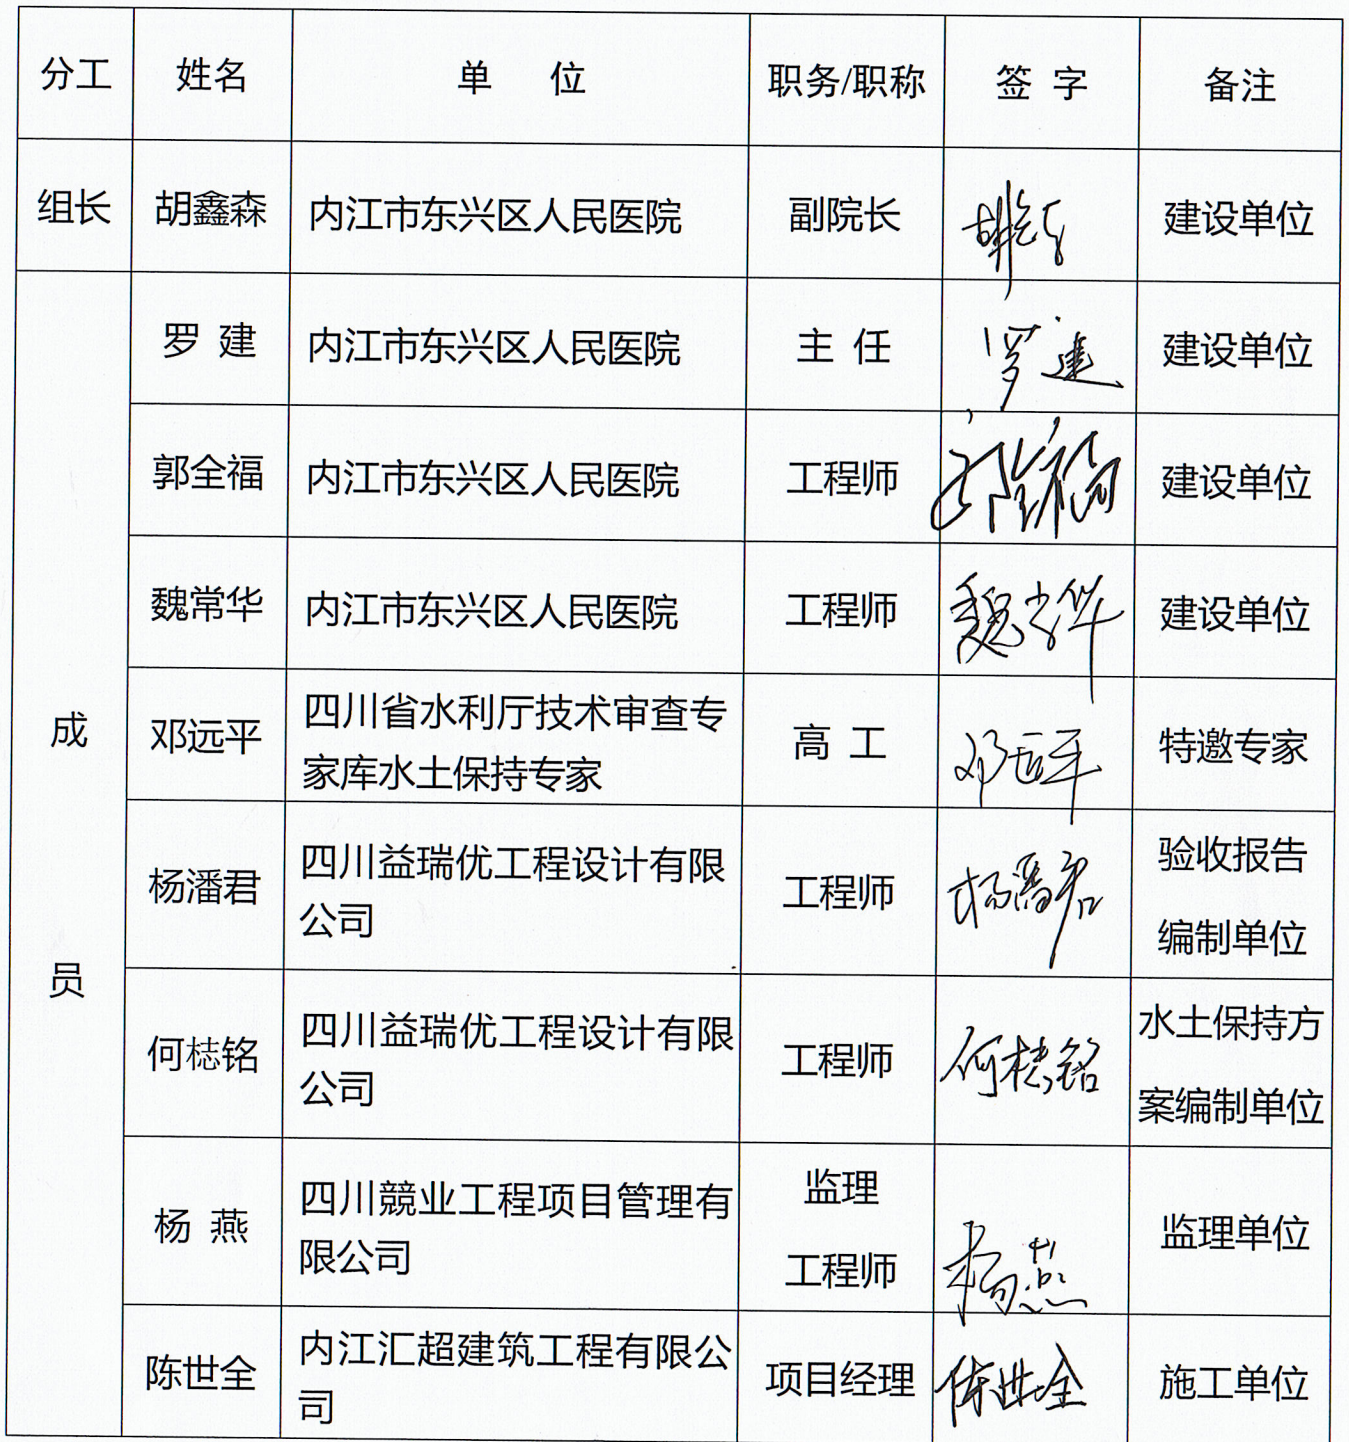 分工 姓名 单 位 职务/职称 签 字 备注
组长 胡鑫森 内江市东兴区人民医院 副院长 建设单位
成员
罗 建 内江市东兴区人民医院 主 任 罗建 建设单位
郭全福 内江市东兴区人民医院 工程师 郭全福 建设单位
魏常华 内江市东兴区人民医院 工程师 魏常华 建设单位
邓远平 四川省水利厅技术审查专 高 工 邓远平 特邀专家
家库水土保持专家
杨潘君 四川益瑞优工程设计有限 工程师 杨潘君 验收报告
公司 编制单位
何梽铭 四川益瑞优工程设计有限 工程师 何梽铭 水土保持方
公司 案编制单位
杨 燕 四川競业工程项目管理有 监理 杨燕 监理单位
限公司 工程师
陈世全 内江汇超建筑工程有限公 项目经理 陈世全 施工单位
司